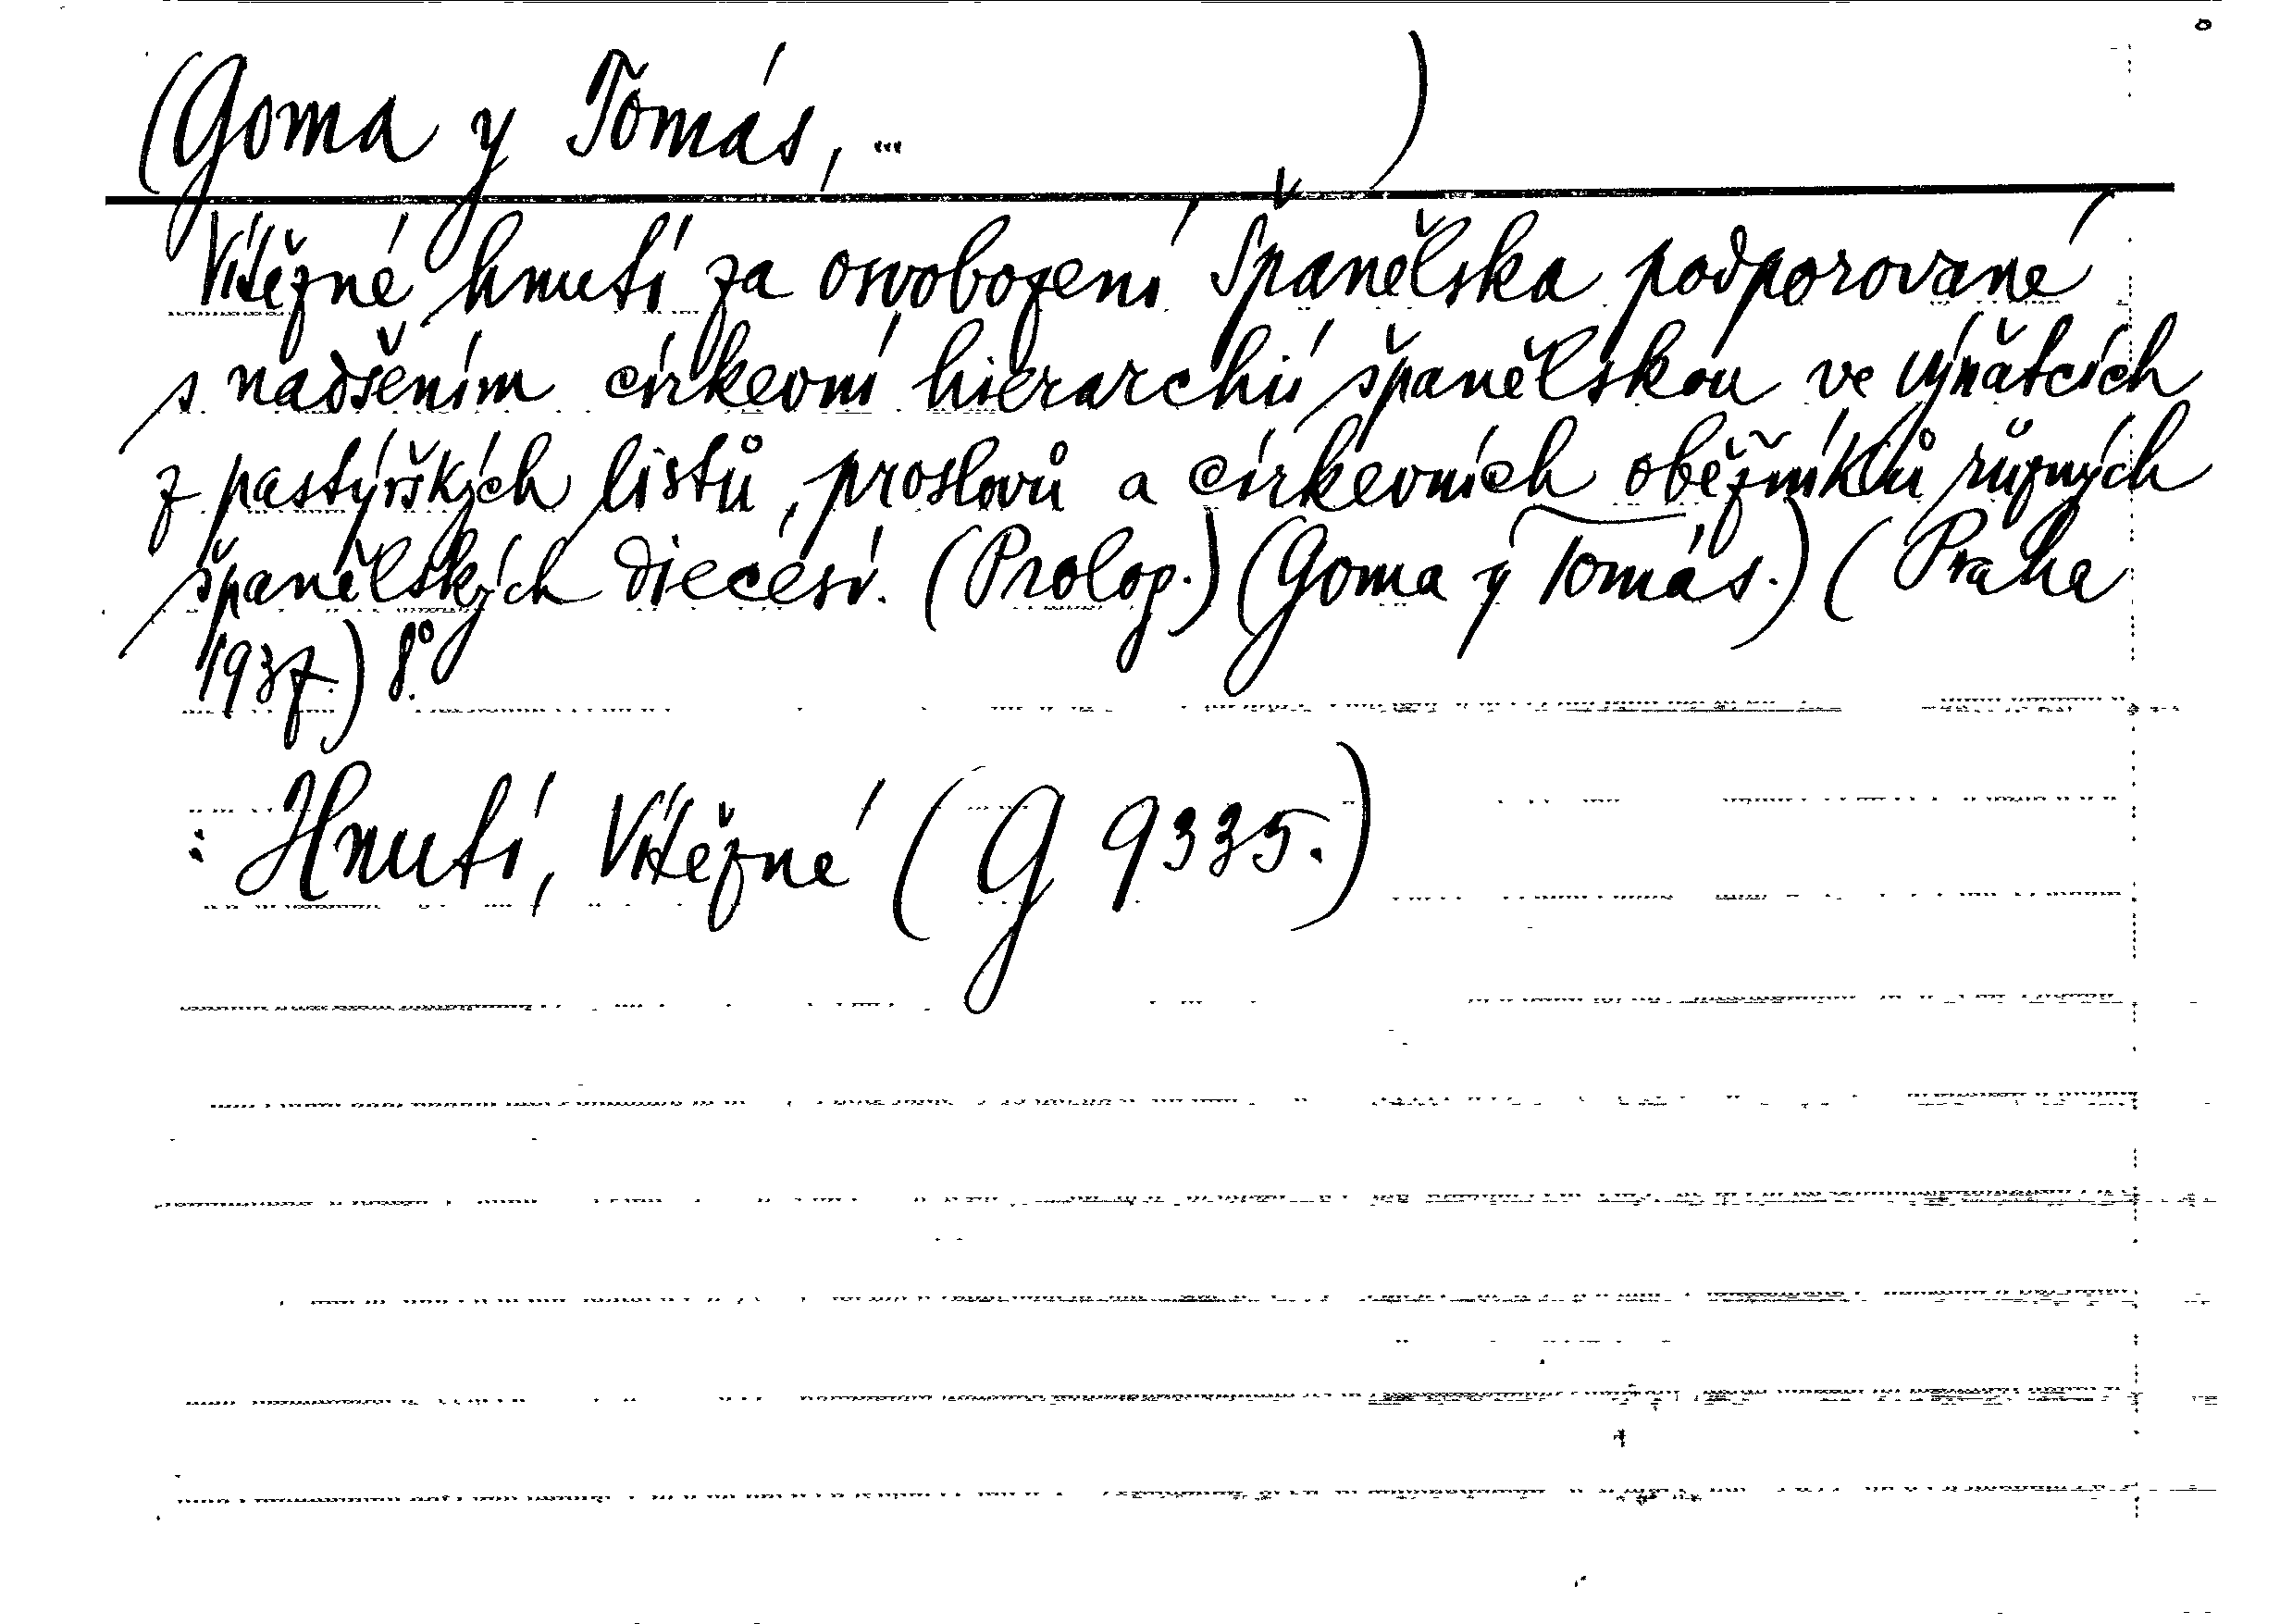 (Goma y Tomás, ... )
Vítězné hnutí za osvobození Španělska podporované
s nadšením církevní hierarchií španělskou ve výňatcích
z pastýřských listů, proslovů a církevních oběžníků různých
španělských diecésí. (Prolog.) (Goma y Tomás.) (Praha
1937.) 8°.
: Hnutí, Vítězné (G 9335.)